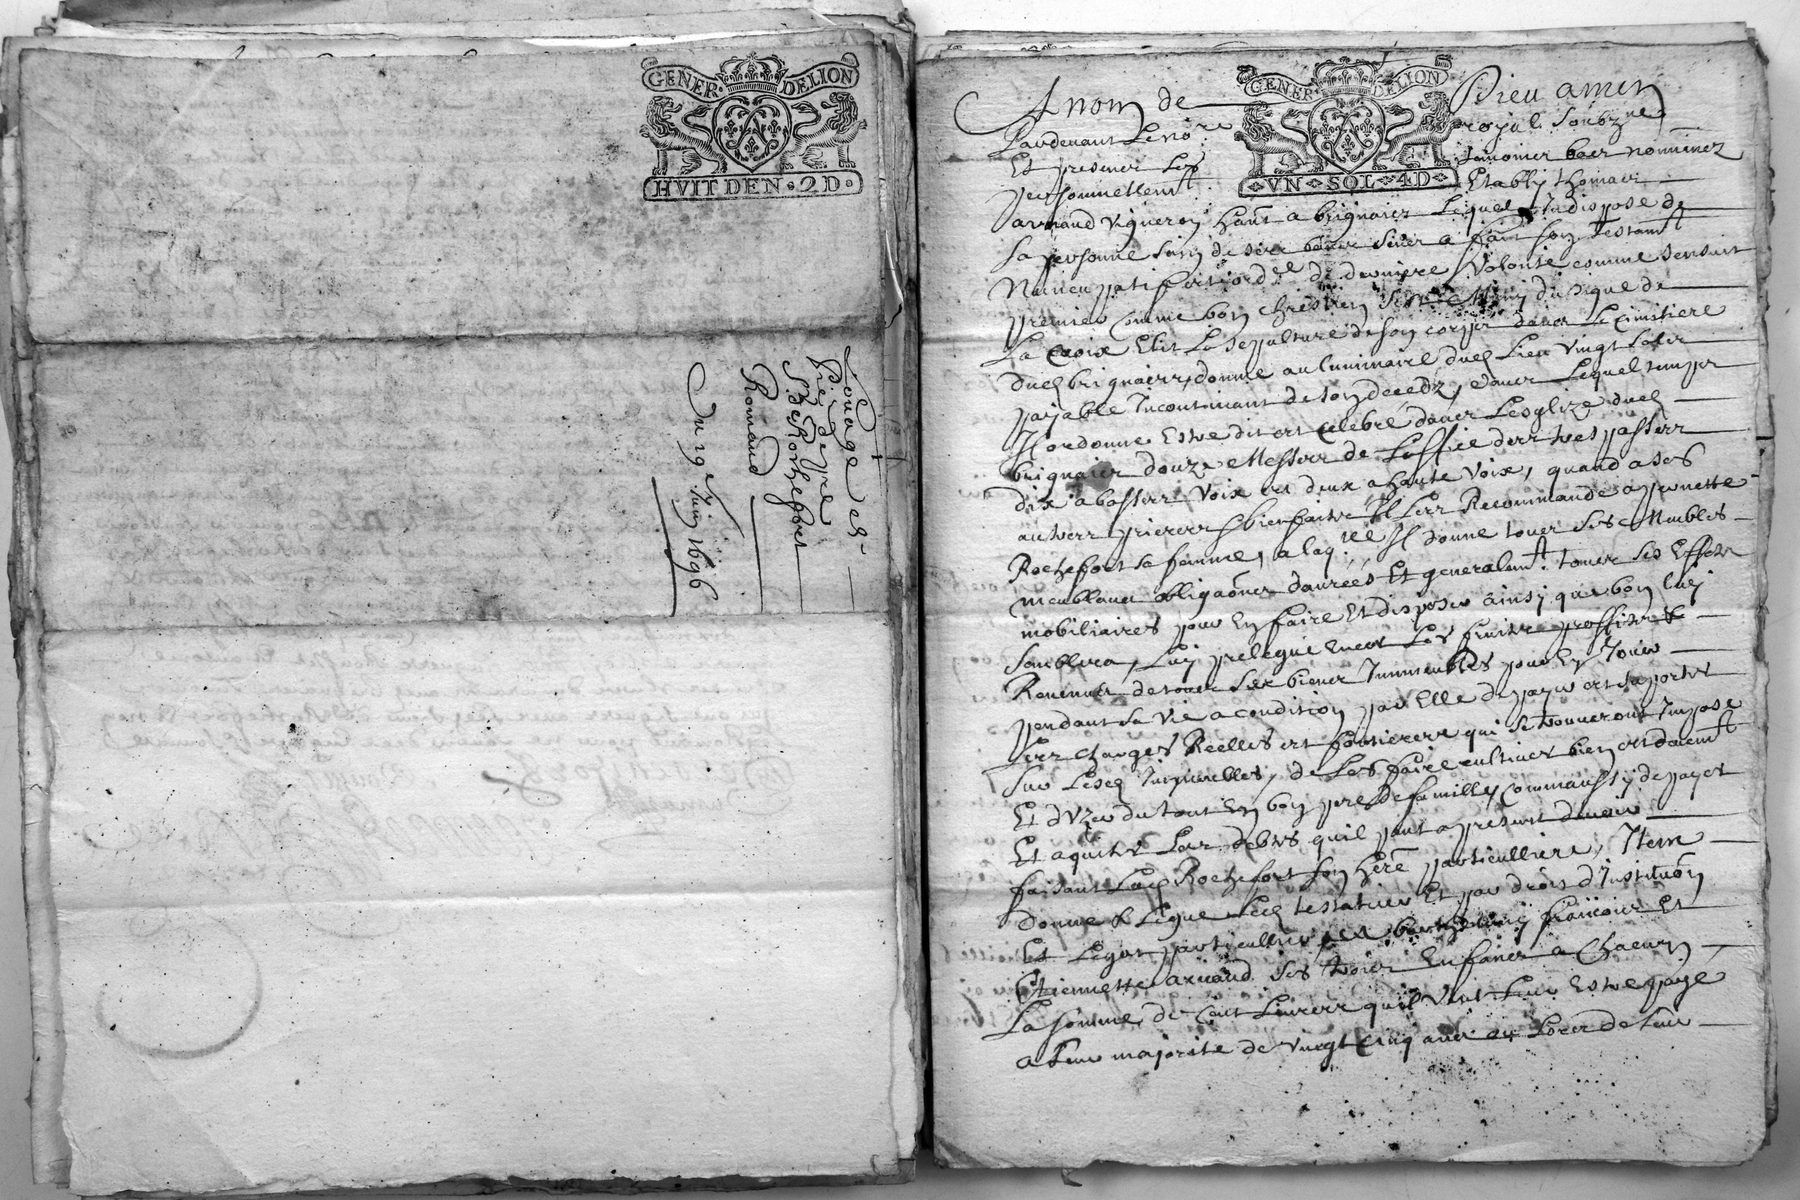 GENER DELION
HVIT DEN · 2D ·
Louage et
Prix de
Rochefort
Romand
Du 19e Juin 1696
GENER DELION
VN SOL 4D
Au nom de Dieu amen
Pardevant Le nore royal soubzne
Et presence Les temoins bas nommez
personnellemt Estably thomas
arnaud vigneron hant a brignais Lequel Indispose de
sa personne sain de ses sens a fait son testamt
Nuncupatif et ordre de derniere volonte comme sensuit
premier comme bon chrestien du signe de
La Croix Elit La sepulture de son corps dans Le cimitiere
dud brignais, donne au luminaire dud Lieu vingt sols
payable Incontinant de son deceds, dans Lequel temps
Il ordonne Estre dit et celebré dans Lesglize dud
brignais douze Messes de Loffice des trespasses
dix a basses voix et deux a haute voix, quand a ses
autres prieres bienfaits Il les Recommande a pernette
Rochefort sa femme, a laqlle Il donne tous ses Meubles
meublans obligaons danrées Et generalemt tous ses Effets
mobiliaires pour En faire Et disposer ainsy que bon luy
semblera, Luy prelegue encor Les fruits proffits &
Revenus de tous ses biens Immeubles pour En Jouir
pendant sa vie a condition par Elle de payer et suporter
les charges Reelles et foncieres qui se trouveront Impose
sur Lesd Immeubles, de Les faire cultiver bien et duemt
Et d'Vzer du tout En bon pere de famille, comm'aussy de payer
Et aquiter Les debtes quil peut a present devoir
faisant Lad Rochefort son here particulliere, Item
donne & Legue Led testateur Et par droit d'Institution
Et Legat particullier a barthelemy françois Et
Etiennette arnaud ses trois Enfans a Chacun
La somme de Cent Livres quil veut Leur Estre payé
a Leur majorite de vingt cinq ans ou Lors de leur